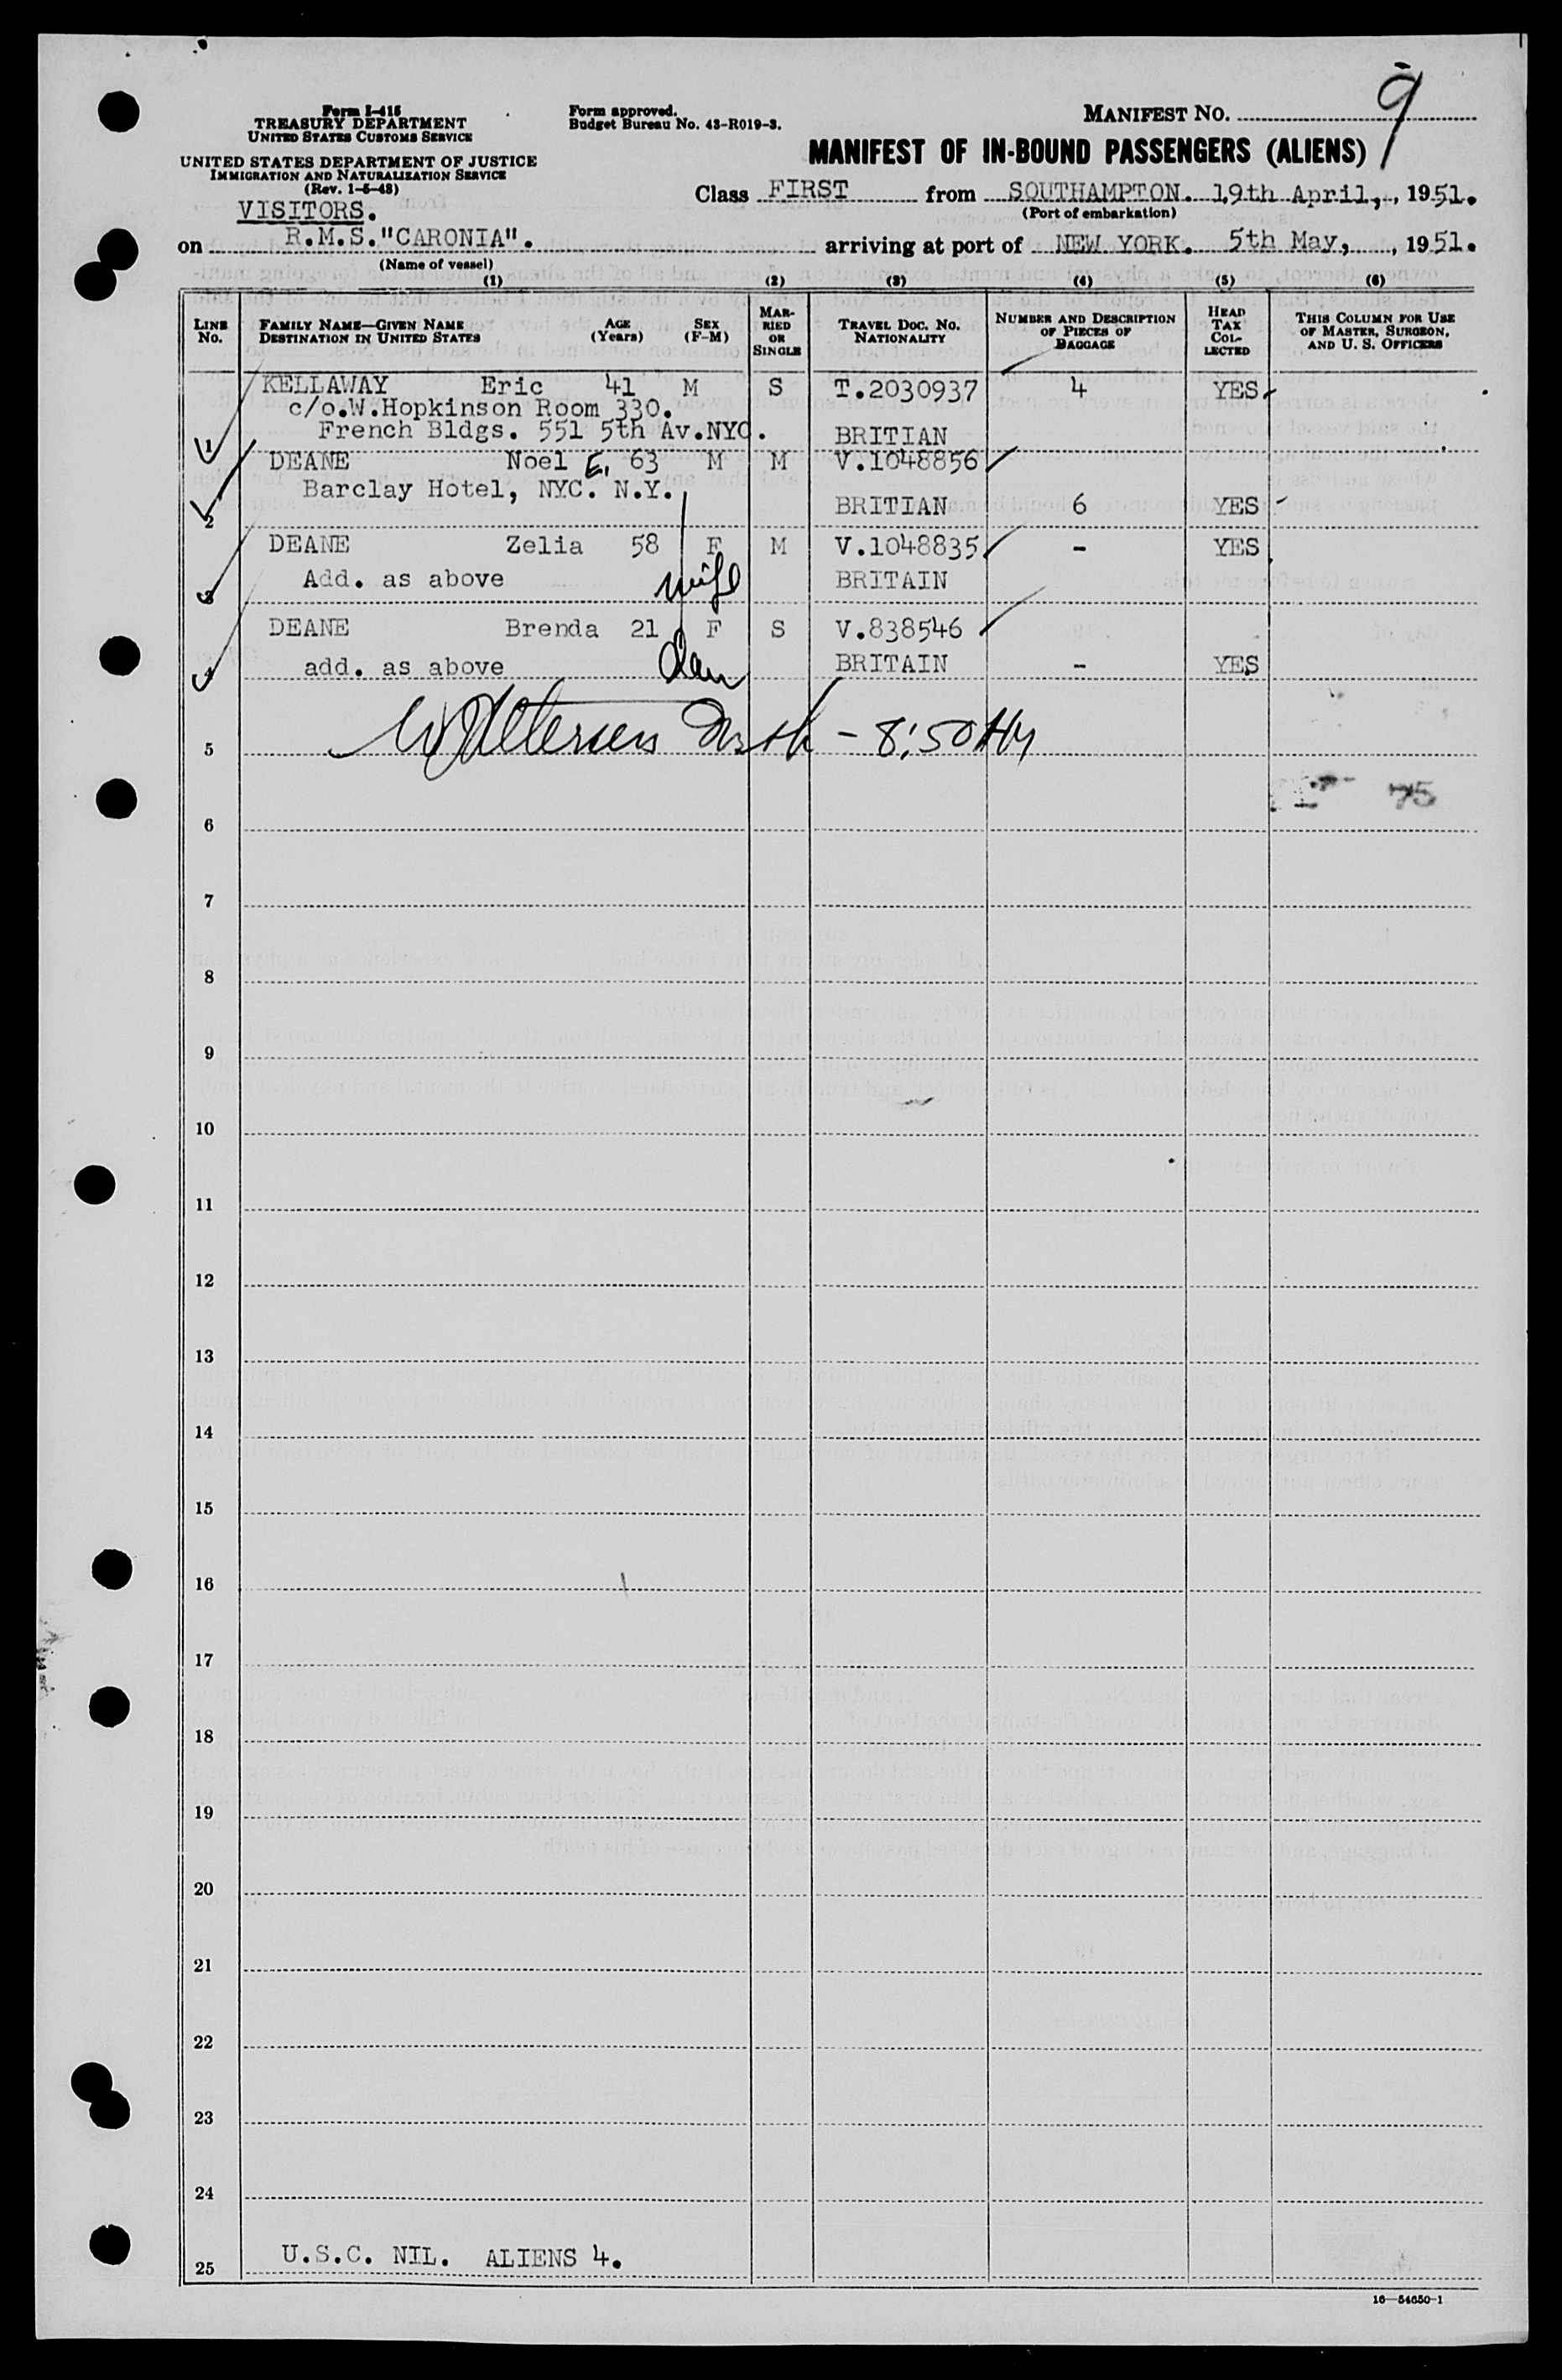 Form I-415
TREASURY DEPARTMENT
UNITED STATES CUSTOMS SERVICE
UNITED STATES DEPARTMENT OF JUSTICE
IMMIGRATION AND NATURALIZATION SERVICE
(Rev. 1-5-48)
Form approved.
Budget Bureau No. 43-R019-3.
MANIFEST NO. 9
MANIFEST OF IN-BOUND PASSENGERS (ALIENS)
Class FIRST from SOUTHAMPTON. 19th April, , 1951.
(Port of embarkation)
VISITORS.
on R.M.S."CARONIA". arriving at port of NEW YORK. 5th May, , 1951.
(Name of vessel)
(1) (2) (3) (4) (5) (6)
LINE No. FAMILY NAME—GIVEN NAME DESTINATION IN UNITED STATES AGE (Years) SEX (F-M) MARRIED OR SINGLE TRAVEL DOC. NO. NATIONALITY NUMBER AND DESCRIPTION OF PIECES OF BAGGAGE HEAD TAX COLLECTED THIS COLUMN FOR USE OF MASTER, SURGEON, AND U. S. OFFICERS
KELLAWAY Eric 41 M S T.2030937 4 YES
c/o.W.Hopkinson Room 330.
1 French Bldgs. 551 5th Av.NYC. BRITIAN
DEANE Noel E, 63 M M V.1048856
Barclay Hotel, NYC. N.Y.
2 BRITIAN 6 YES
DEANE Zelia 58 F M V.1048835 - YES
3 Add. as above wife BRITAIN
DEANE Brenda 21 F S V.838546
4 add. as above dau BRITAIN - YES
5 - 8:50 AM
75
6
7
8
9
10
11
12
13
14
15
16
17
18
19
20
21
22
23
24
25 U.S.C. NIL. ALIENS 4.
16—54650-1